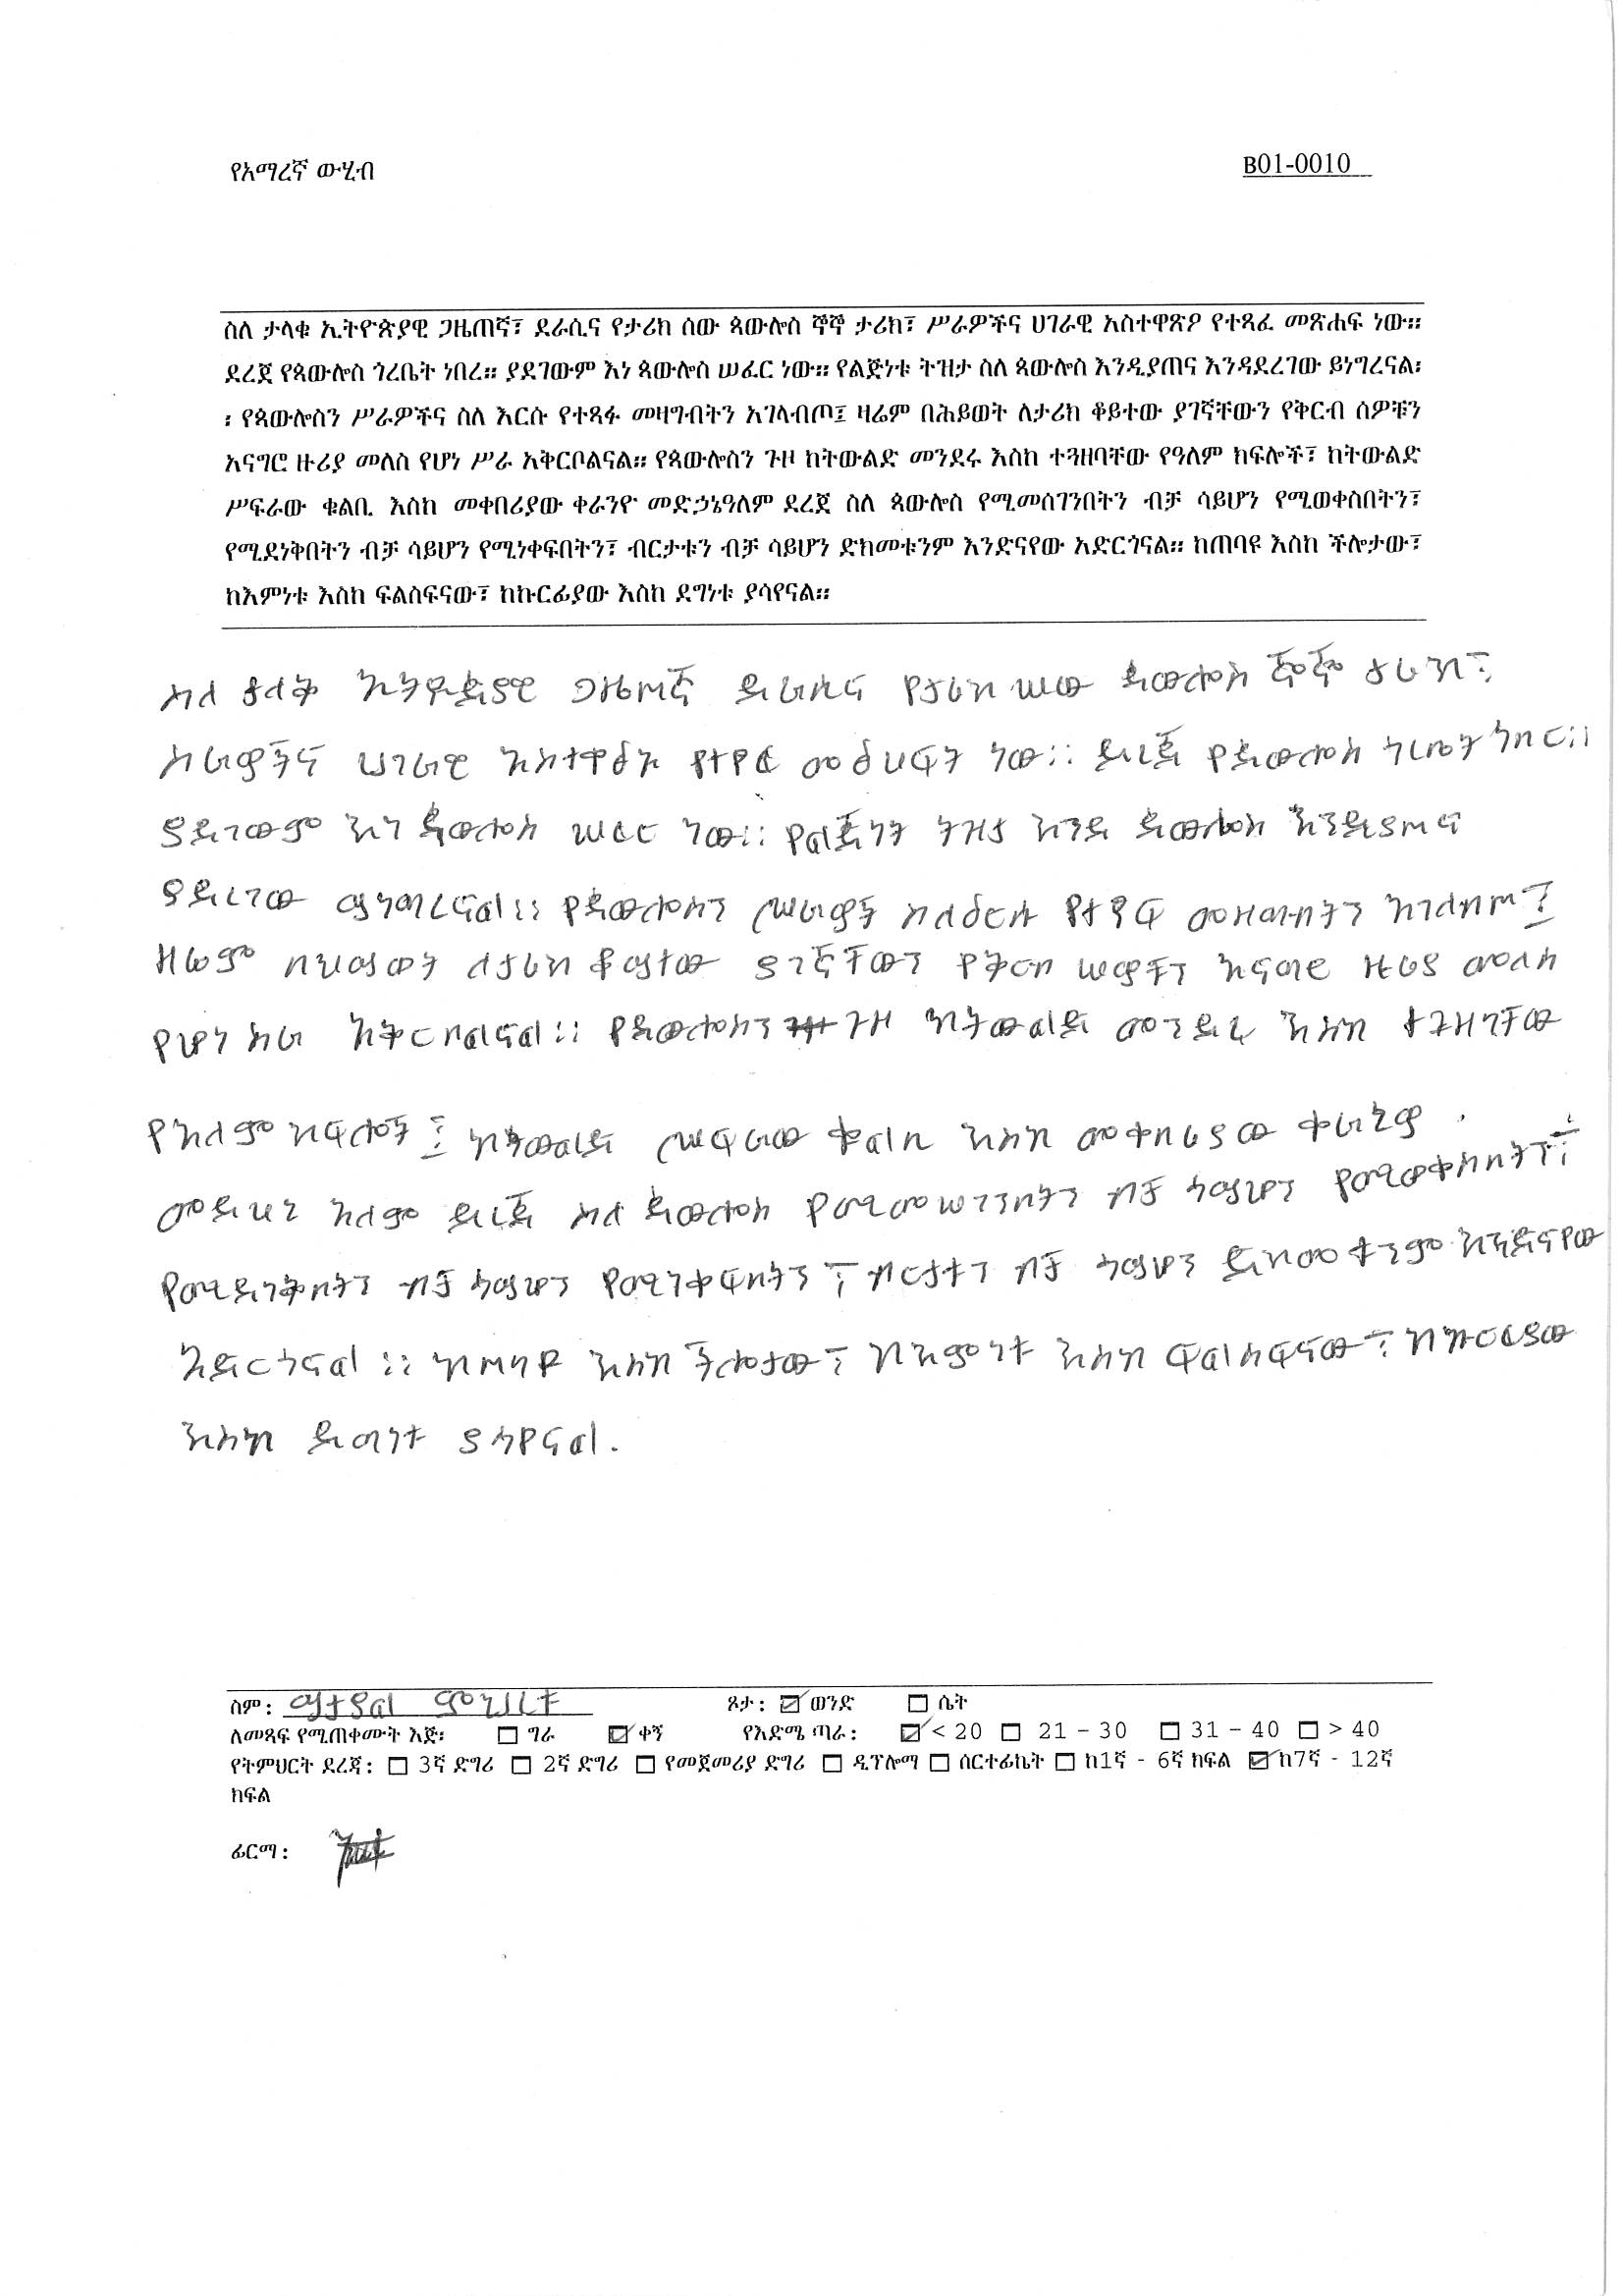 የአማረኛ ውሂብ
B01-0010
ስለ ታላቁ ኢትዮጵያዊ ጋዜጠኛ፣ ደራሲና የታሪክ ሰው ጳውሎስ ኞኞ ታሪክ፣ ሥራዎችና ሀገራዊ አስተዋጽዖ የተጻፈ መጽሐፍ ነው።
ደረጀ የጳውሎስ ጎረቤት ነበረ። ያደገውም እነ ጳውሎስ ሠፈር ነው። የልጅነቱ ትዝታ ስለ ጳውሎስ እንዲያጠና እንዳደረገው ይነግረናል፡
፡ የጳውሎስን ሥራዎችና ስለ እርሱ የተጻፉ መዛግብትን አገላብጦ፤ ዛሬም በሕይወት ለታሪክ ቆይተው ያገኛቸውን የቅርብ ሰዎቹን
አናግሮ ዙሪያ መለስ የሆነ ሥራ አቅርቦልናል። የጳውሎስን ጉዞ ከትውልድ መንደሩ እስከ ተጓዘባቸው የዓለም ክፍሎች፣ ከትውልድ
ሥፍራው ቁልቢ እስከ መቀበሪያው ቀራንዮ መድኃኔዓለም ደረጀ ስለ ጳውሎስ የሚመሰገንበትን ብቻ ሳይሆን የሚወቀስበትን፣
የሚደነቅበትን ብቻ ሳይሆን የሚነቀፍበትን፣ ብርታቱን ብቻ ሳይሆን ድክመቱንም እንድናየው አድርጎናል። ከጠባዩ እስከ ችሎታው፣
ከእምነቱ እስከ ፍልስፍናው፣ ከኩርፊያው እስከ ደግነቱ ያሳየናል።
ስለ ታላቅ ጋዜጠኛ ደራሲና የታሪክ ሠው ጳውሎስ ኞኞ ታሪክ፣
ስራዎችና ሀገራዊ የተፃፈ ነው። ደረጀ የጳውሎስ ጎረቤት ነበር።
ያደገውም እነ ጳውሎስ ሠፈር ነው። የልጅነት ትዝታ እንደ ጳውሎስ እንዲያጠና
ያደረገው ይነግረናል። የጳውሎስን ሥራዎች የተፃፉ መዛግብትን አገላብጦ፤
ዛሬም በሂይወት ለታሪክ ቆይታው ያገኛቸውን የቅርብ ሠዎችን አናግሮ ዙሪያ መለስ
የሆነ ስራ አቅርቦልናል። የጳውሎስን ጉዞ ከትውልድ መንደሩ እስከ
የአለም ክፍሎች፤ ከትውልድ ሥፍራው ቁልቢ እስከ መቀበሪያው ቀራንዮ
አለም ደረጀ ስለ ጳውሎስ የሚመሠገንበትን ብቻ ሳይሆን የሚወቀስበትን፣
የሚደነቅበትን ብቻ ሳይሆን የሚነቀፍበትን፣ ብርታቱን ብቻ ሳይሆን ድክመቱንም እንድናየው
አድርጎናል። ከጠባዩ እስከ ችሎታው፣ ከእምነቱ እስከ ፍልስፍናው፣ ከኩርፊያው
እስከ ደግነቱ ያሳየናል.
ስም: ጾታ: ወንድ ሴት
ለመጻፍ የሚጠቀሙት እጅ፡ ግራ ቀኝ የእድሜ ጣራ: < 20 21 – 30 31 – 40 > 40
የትምህርት ደረጃ: 3ኛ ድግሪ 2ኛ ድግሪ የመጀመሪያ ድግሪ ዲፕሎማ ሰርተፊኬት ከ1ኛ - 6ኛ ክፍል ከ7ኛ - 12ኛ
ክፍል
ፊርማ: